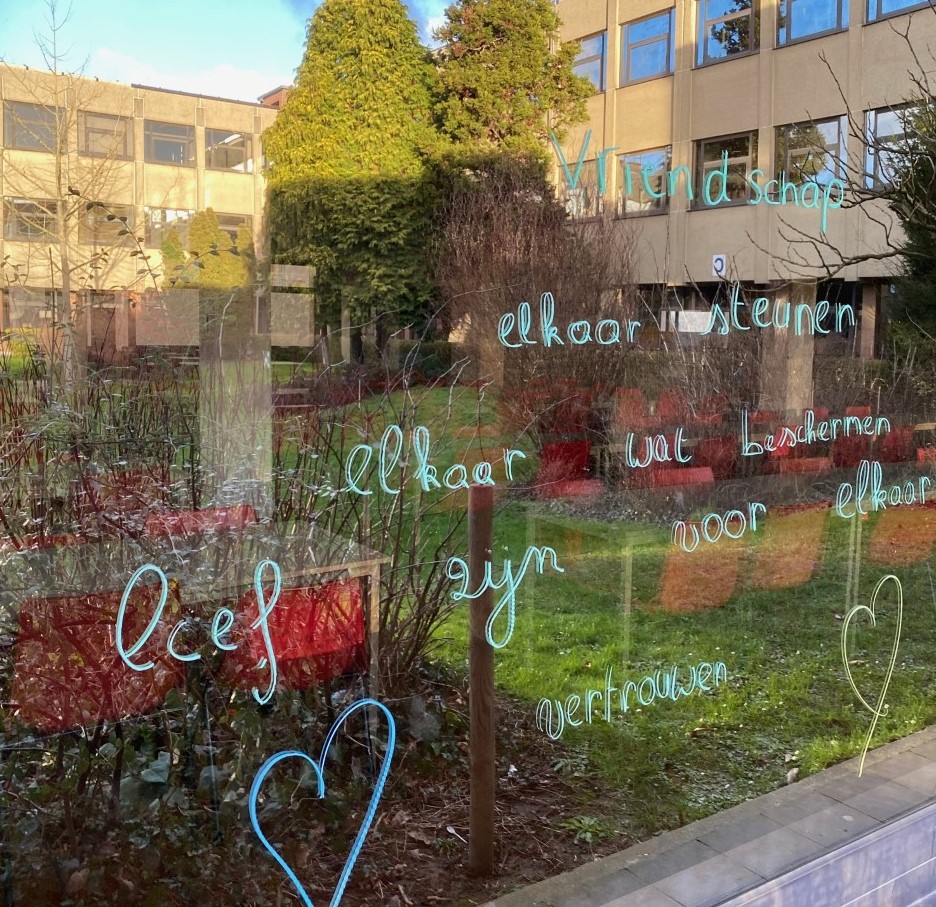 Vriendschap
elkaar steunen
elkaar wat beschermen
lief zijn voor elkaar
vertrouwen